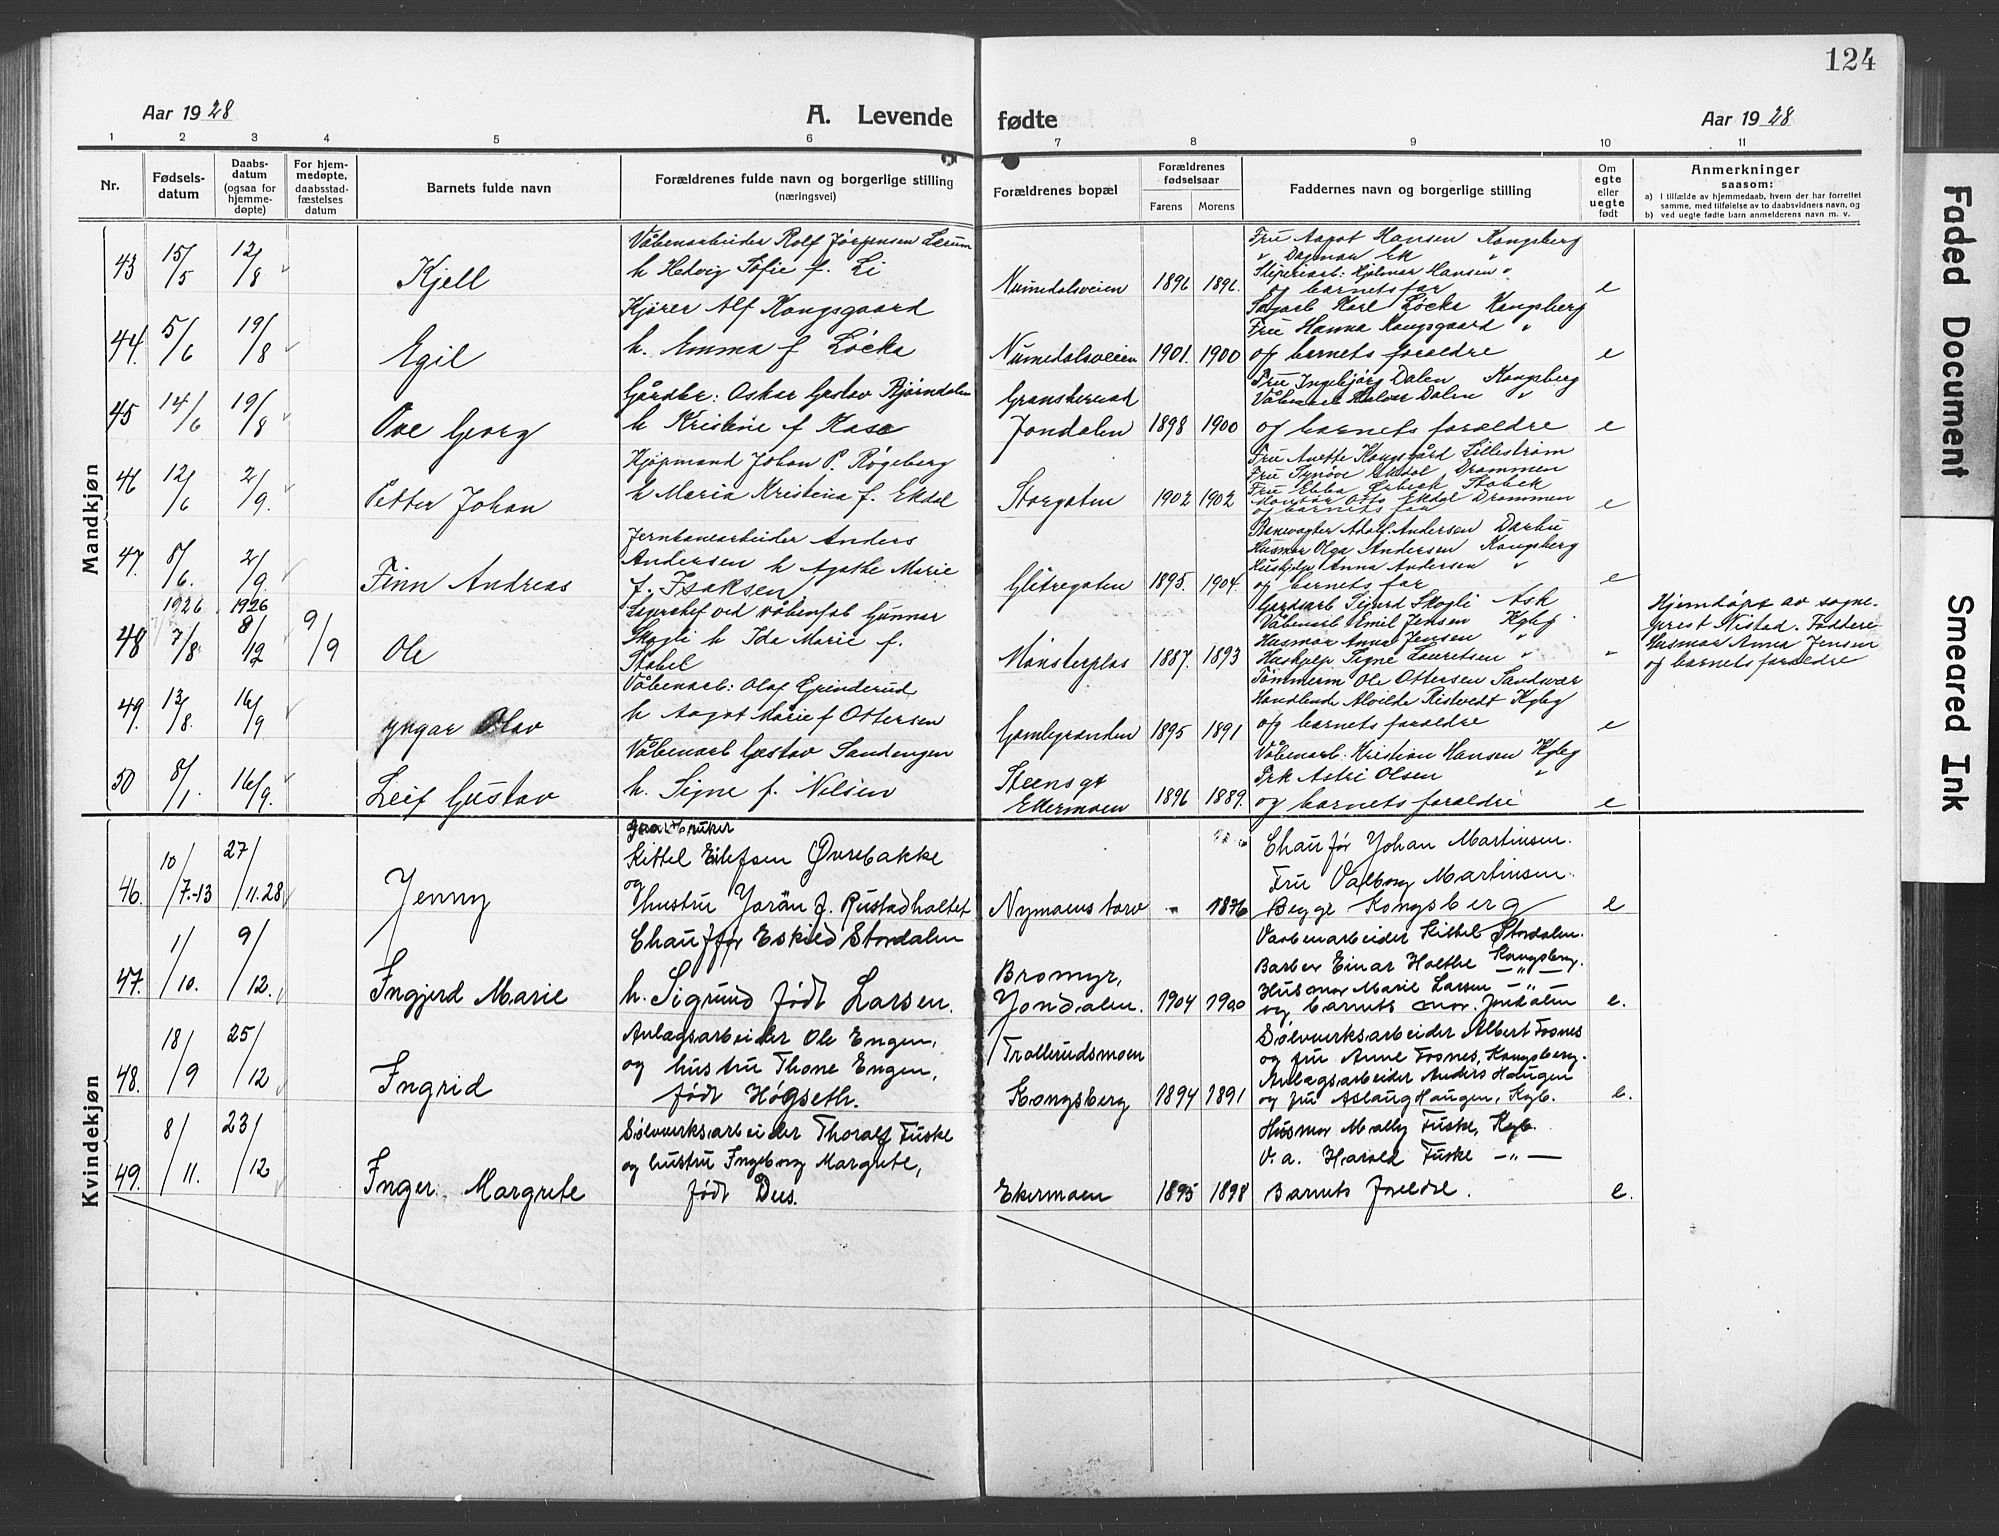 124
Aar 1928
A. Levende
fødte
Aar 1928
1 2 3 4 5 6 7 8 9 10 11
Nr.
Fødsels-
datum
Daabs-
datum
(ogsaa for
hjemme-
døpte)
For hjem-
medøpte,
daabsstad-
fæstelses
datum
Barnets fulde navn
Forældrenes fulde navn og borgerlige stilling
(næringsvei)
Forældrenes bopæl
Forældrenes
fødselsaar
Farens
Morens
Faddernes navn og borgerlige stilling
Om
egte
eller
uegte
født
Anmerkninger
saasom:
a) I tilfælde av hjemmedaab, hvem der har forrettet
samme, med tilføielse av to daabsvidners navn, og
b) ved uegte fødte barn anmelderens navn m. v.
Mandkjøn
43 15/5 12/8 Kjell
Våbenarbeider Rolf Jørgensen Lerum
h Hedvig Sofie f. Li
Numedalsveien 1896 1896.
Fru Aagot Hansen Kongsberg
" Dagmar Ek "
Sliperiarb: Hjalmar Hansen "
og barnets far
e
44. 5/6 19/8 Egil
Kjører Alf Kongsgaard
h. Emma f Løcka
Numedalsveien 1901. 1900
Sagarb Karl Løcka Kongsberg
Fru Hanna Kongsgaard "
og barnets foraldre
e
45 14/6 19/8 Ove Georg
Gårdbr: Oskar Gustav Bjørndalen
h Kristine f Kasa
Gransherad
Jondalen 1898 1900
Fru Ingebjørg Dalen Kongsberg
Våbenarb Halvor Dalen "
og barnets foraldre
e
46 12/6 2/9. Petter Johan
Kjøpmand Johan P. Røgeberg
h Maria Kristina f. Ekdal
Storgaten 1902 1902
Fru Anette Kongsgård Lillestrøm
Fru Synøve Ekdal Drammen
Fru Ebba Ørbeck Skabek
Montør Otto Ekdal Drammen
og barnets far
e
47. 8/6. 2/9 Finn Andreas
Jernbanearbeider Anders
Andersen h Agathe Marie
f. Isaksen
Glitregaten 1895. 1904.
Banevagter Adolf Andersen Darbu
Husmor Olga Andersen Kongsberg
Hushjelp Anna Andersen "
og barnets far
e
48 1926 7/8 1926 8/12 9/9 Ole
Lagerchef ved våbenfab Gunnar
Skogli h Ida Marie f.
Stabel
Mønsterplas 1887. 1893
Gardsarb Sigurd Skogli Ask
Våbenarb Emil Jensen Kgbg
Husmor Anna Jensen "
Hushjelp Signe Lauretsen "
"
Hjemdøpt av sogne-
prest Nistad. Faddere
Husmor Anna Jensen
og barnets foraldre
49. 13/8. 16/9 Yngar Olav
Våbenarb: Olaf Grinderud
h Aagot Marie f Ottersen
Gamlegrænden 1895 1891
Tømmerm Ole Ottersen Sandsvær
Handlende Alvilde Ristvedt Kgbg
og barnets foraldre
e
50 8/1. 16/9. Leif Gustav
Våbenarb Gustav Sandengen
h. Signe f. Nilsen
Steensgt
Ekermoen 1896 1889.
Våbenarb. Kristian Hansen Kgbg
Frk Astri Olsen "
og barnets foraldre
e
Kvindekjøn
46. 10/7.-13 27/11.28 Jenny
Gaardbruker
Kittel Eilefsen Øvrebakke
og
hustru Jorån f. Rustadholtet
Nymoens torv - 1876
Chauffør Johan Martinsen.
Fru Valborg Martinsen.
Begge Kongsberg
e
47. 1/10. 9/12. Ingjerd Marie
Chauffør Eskild Stordalen
h. Sigrund født Larsen.
Bromyr,
Jondalen. 1904 1900
Vaabenarbeider Kittel Stordalen.
Barber Einar Holthe Kongsberg.
Husmor Marie Larsen -"-
og barnets mor. Jondalen
e.
48. 18/9 25/12 Ingrid
Anlagsarbeider Ole Engen,
og hustru Thone Engen,
født Høgseth.
Trollerudsmoen
Kongsberg 1894 1891
Sølvverksarbeider Albert Fosnes
og fru Anne Fosnes, Kongsberg.
Anlagsarbeider Anders Haugen
og fru Aslaug Haugen, Kgb.
e.
49. 8/11. 23/12 Inger Margrete
Sølvverksarbeider Thoralf Fuske
og hustru Ingeborg Margrete,
født Dus.
Ekermoen 1895 1898
Husmor Mally Fuske, Kgb.
V.a. Harald Fuske -"-
Barnets foreldre.
e.
Faded Document
Smeared Ink